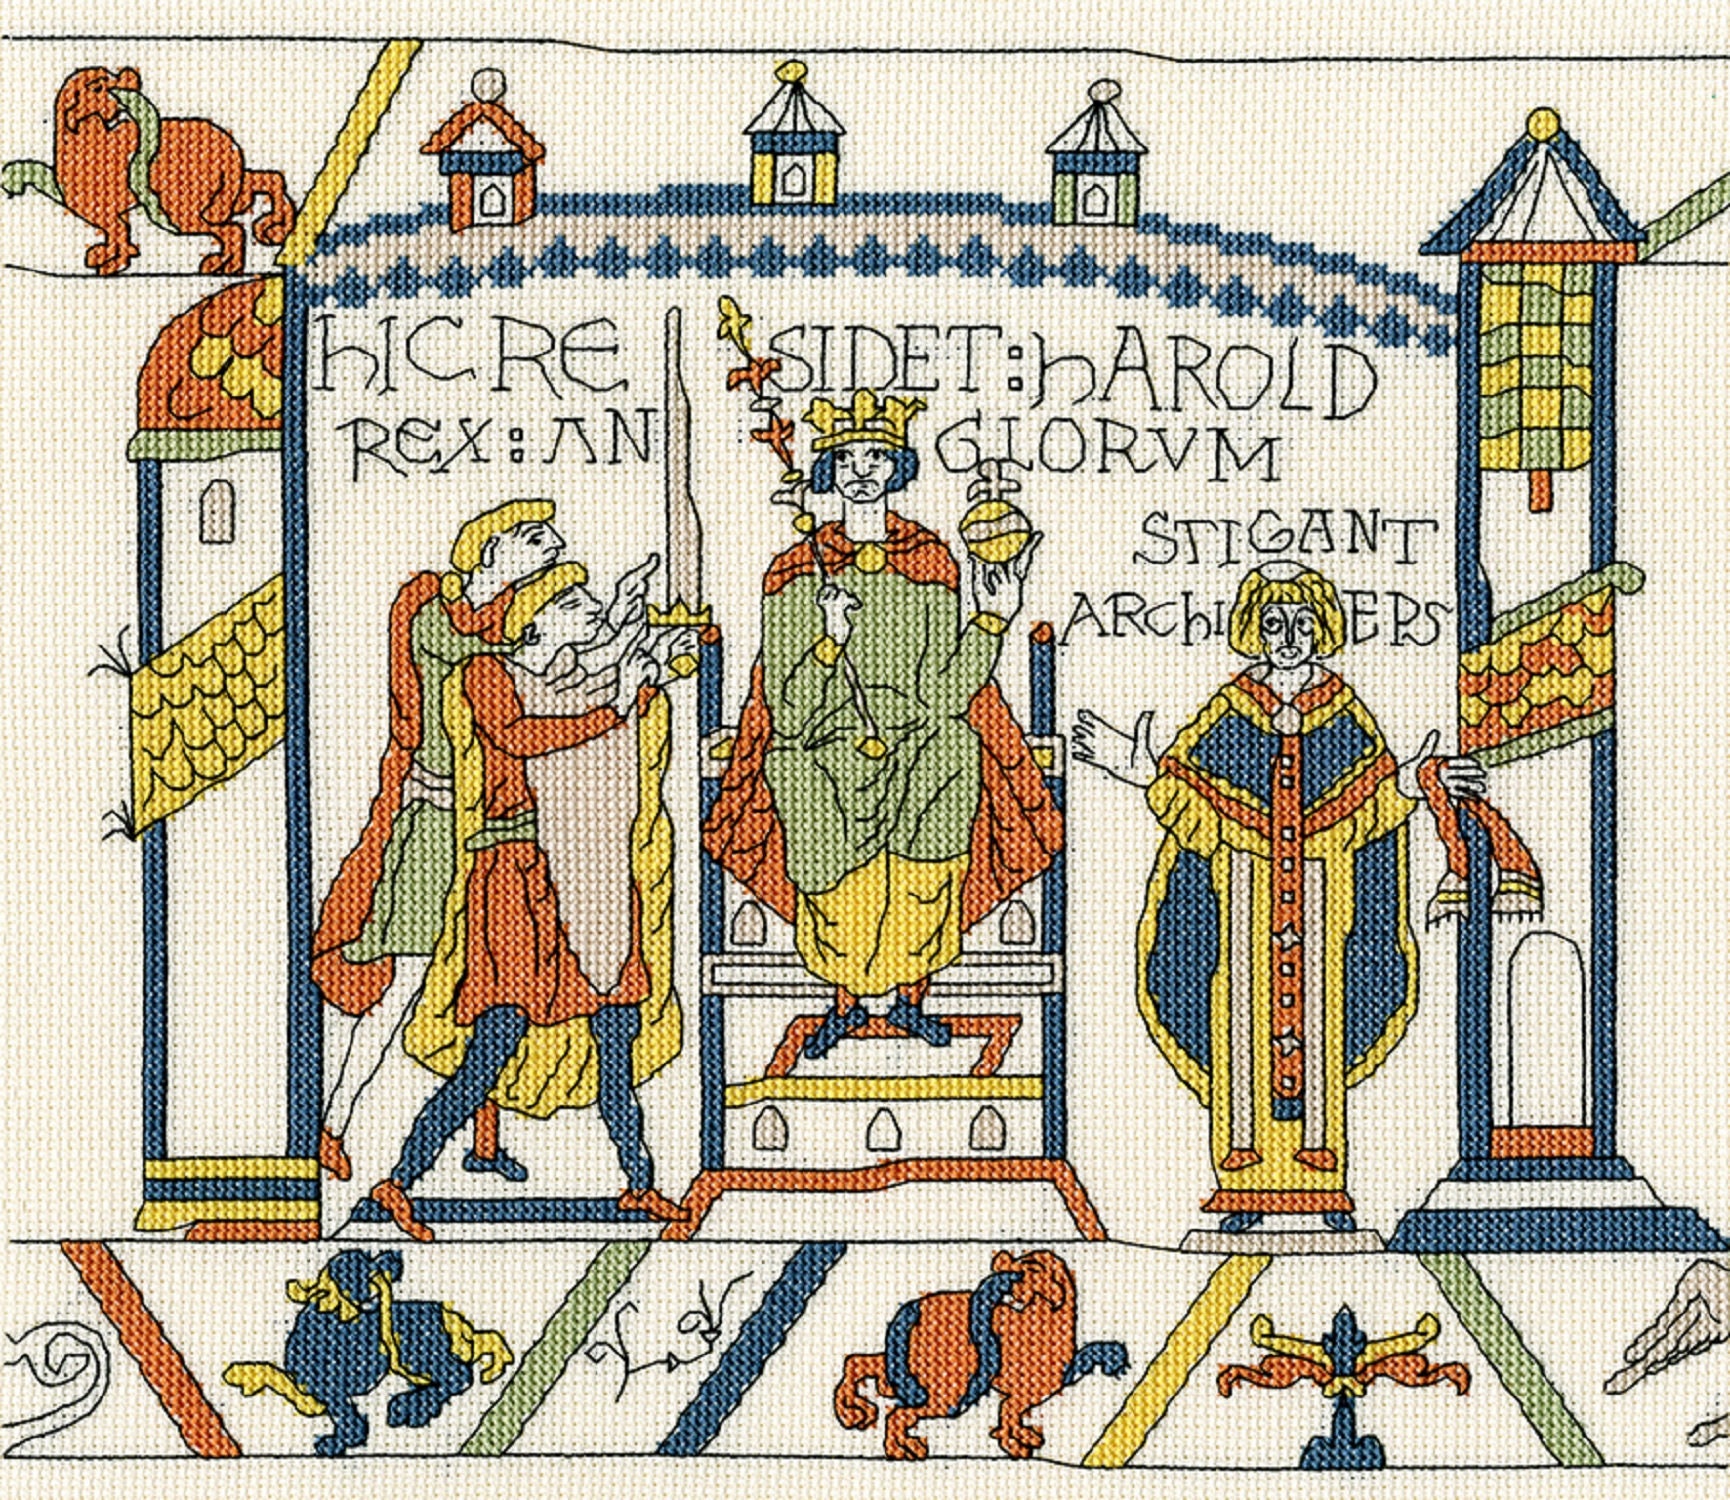 hIC RE SIDET : hAROLD
REX : AN GLORVM
STIGANT
ARChI EPS